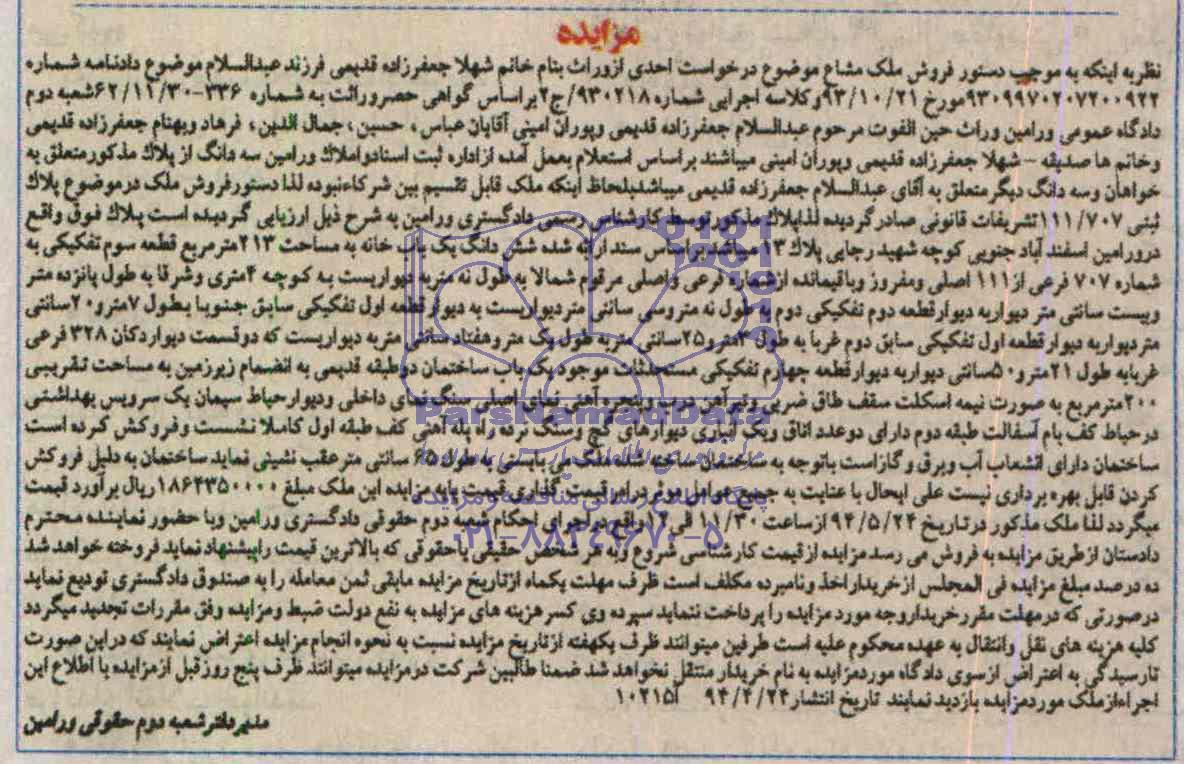 مزایده
نظربه اینکه به موجب دستور فروش ملک مشاع موضوع درخواست احدی ازوراث بنام خانم شهلا جعفرزاده قدیمی فرزند عبدالسلام موضوع دادنامه شماره
۹۳۰۹۹۷۰۲۰۷۲۰۰۹۲۲مورخ ۹۳/۱۰/۲۱وکلاسه اجرایی شماره ۹۳۰۲۱۸/ج۲براساس گواهی حصروراثت به شماره ۳۳۶-۶۲/۱۱/۳۰شعبه دوم
دادگاه عمومی ورامین وراث حین الفوت مرحوم عبدالسلام جعفرزاده قدیمی وپوران امینی آقایان عباس ، حسین ، جمال الدین ، فرهاد وبهنام جعفرزاده قدیمی
وخانم ها صدیقه - شهلا جعفرزاده قدیمی وپوران امینی میباشند براساس استعلام بعمل آمده ازاداره ثبت اسنادواملاك ورامین سه دانگ از پلاك مذکورمتعلق به
خواهان وسه دانگ دیگرمتعلق به آقای عبدالسلام جعفرزاده قدیمی میباشدبلحاظ اینکه ملک قابل تقسیم بین شرکاءنبوده لذا دستورفروش ملک درموضوع پلاك
ثبتی ۱۱۱/۷۰۷تشریفات قانونی صادرگردیده لذاپلاك مذکورتوسط کارشناس رسمی دادگستری ورامین به شرح ذیل ارزیابی گردیده است پلاك فوق واقع
درورامین اسفند آباد جنوبی کوچه شهید رجایی پلاك ۱۳ میباشدبراساس سند ارائه شده شش دانگ یک باب خانه به مساحت ۲۱۳مترمربع قطعه سوم تفکیکی به
شماره ۷۰۷ فرعی از۱۱۱ اصلی ومفروز وباقیمانده ازشماره فرعی واصلی مرقوم شمالا به طول نه متربه دیواریست به کوچه ۴متری وشرقا به طول پانزده متر
وبیست سانتی متر دیواربه دیوارقطعه دوم تفکیکی دوم به طول نه متروسی سانتی متردیواریست به دیوارقطعه اول تفکیکی سابق جنوبا بطول ۷مترو۲۰سانتی
متردیواربه دیوارقطعه اول تفکیکی سابق دوم غربا به طول ۳مترو۲۵سانتی متربه طول یک متروهفتاد سانتی متربه دیواریست که دوقسمت دیواردکان ۳۲۸ فرعی
غربابه طول ۲۱مترو۵۰سانتی دیواربه دیوارقطعه چهارم تفکیکی مستحدثات موجود یک باب ساختمان دوطبقه قدیمی به انضمام زیرزمین به مساحت تقریبی
۲۰۰مترمربع به صورت نیمه اسکلت سقف طاق ضربی وتیرآهن درب وپنجره آهنی نمای اصلی سنگ نمای داخلی ودیوارحیاط سیمان یک سرویس بهداشتی
درحیاط کف بام آسفالت طبقه دوم دارای دوعدد اتاق ویک انباری دیوارهای گچ وسنگ نرده راه پله آهنی کف طبقه اول کاملا نشست وفروکش کرده است
ساختمان دارای انشعاب آب وبرق وگازاست باتوجه به ساختمان ساخته شده ملک می بایست به طول ۶۵ سانتی مترعقب نشینی نماید ساختمان به دلیل فروکش
کردن قابل بهره برداری نیست علی ایحال با عنایت به جمیع عوامل موثردرامر قیمت گذاری قیمت پایه مزایده این ملک مبلغ ۱۸۶۲۳۵۰۰۰۰ریال برآورد قیمت
میگردد لذا ملک مذکور درتاریخ ۹۴/۵/۲۴ ازساعت ۱۱/۳۰ الی۱۲واقع دراجرای احکام شعبه دوم حقوقی دادگستری ورامین وبا حضور نماینده محترم
دادستان ازطریق مزایده به فروش می رسد مزایده ازقیمت کارشناسی شروع وبه هر شخص حقیقی یاحقوقی که بالاترین قیمت راپیشنهاد نماید فروخته خواهد شد
ده درصد مبلغ مزایده فی المجلس ازخریداراخذ ونامبرده مکلف است ظرف مهلت یکماه ازتاریخ مزایده مابقی ثمن معامله را به صندوق دادگستری تودیع نماید
درصورتی که درمهلت مقررخریداروجه مورد مزایده را پرداخت ننماید سپرده وی کسرهزینه های مزایده به نفع دولت ضبط ومزایده وفق مقررات تجدید میگردد
کلیه هزینه های نقل وانتقال به عهده محکوم علیه است طرفین میتوانند ظرف یکهفته ازتاریخ مزایده نسبت به نحوه انجام مزایده اعتراض نمایند که دراین صورت
تارسیدگی به اعتراض ازسوی دادگاه موردمزایده به نام خریدار منتقل نخواهد شد ضمنا طالبین شرکت درمزایده میتوانند ظرف پنج روزقبل ازمزایده با اطلاع این
اجراءازملک موردمزایده بازدید نمایند تاریخ انتشار۹۴/۴/۲۴ ۱۰۲۱۵آ
مدیردفترشعبه دوم حقوقی ورامین
ParsNamadData
پایگاه اطلاع رسانی مناقصه و مزایده
۰۲۱-۸۸۳۴۹۶۷۰-۵